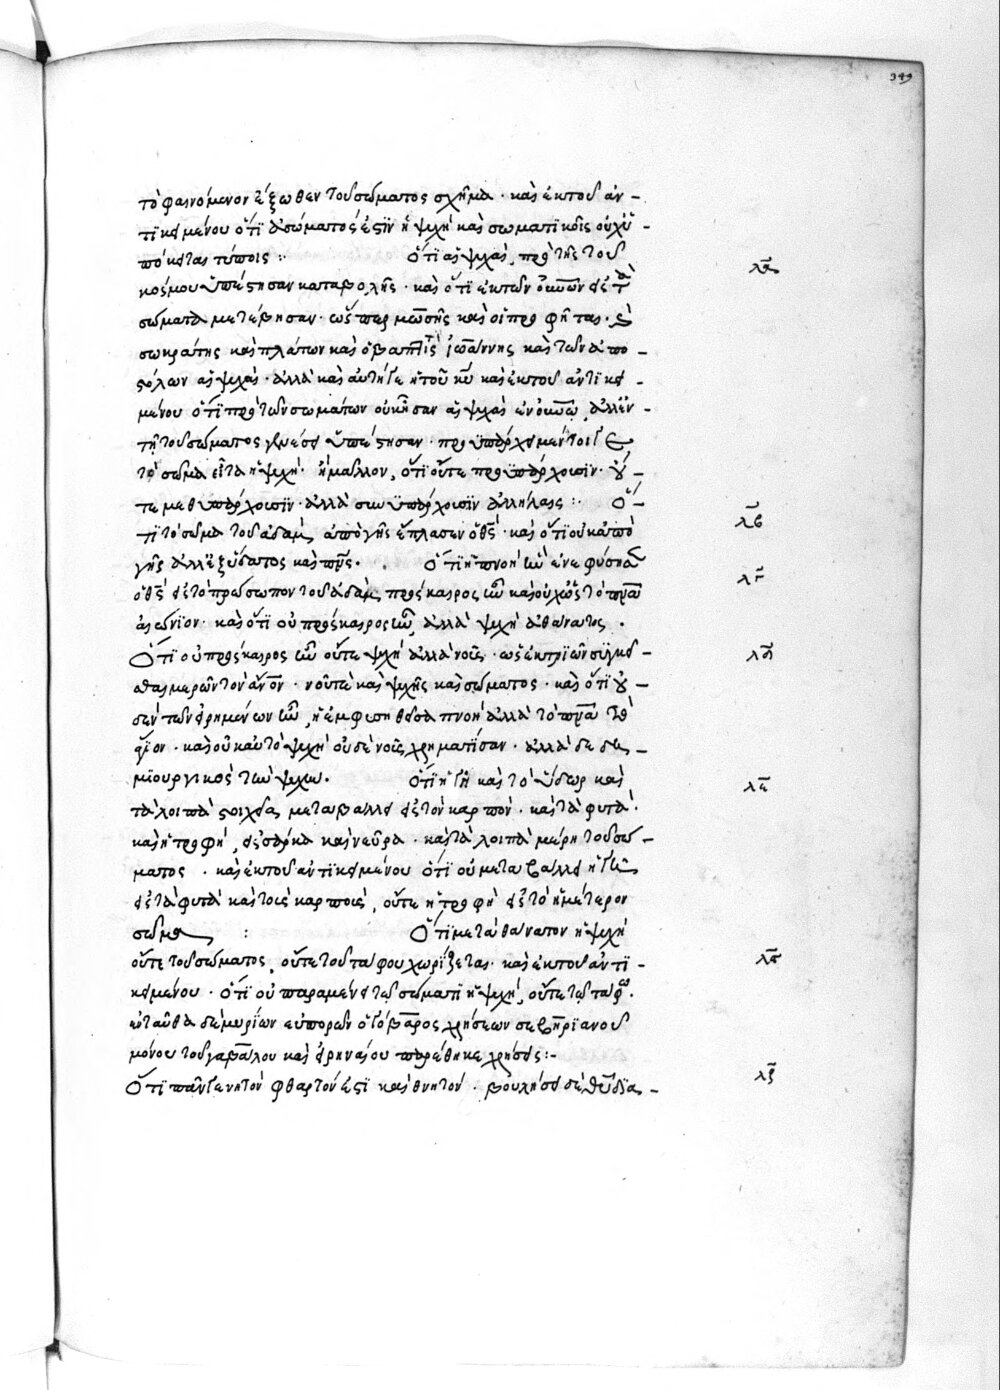 349
τὸ φαινόμενον ἔξωθεν τοῦ σώματος σχῆμα · καὶ ἐκ τοῦ ἀν -
τικειμένου ὅτι ἀσώματός ἐστιν ἡ ψυχὴ καὶ σωματικοῖς οὐχ ὑ -
πόκειται τύποις :· Ὅτι αἱ ψυχαὶ, πρὸ τῆς τοῦ
λα
κόσμου ὑπέστησαν καταβολῆς · καὶ ὅτι ἐκ τῶν οὐνῶν εἰς τὰ
σώματα μετέβησαν · ὥσπερ μωσῆς καὶ οἱ προφῆται · καὶ
σωκράτης καὶ πλάτων καὶ ὁ βαπτιστὴς ἰωάννης καὶ τῶν ἀπο -
στόλων αἱ ψυχαί · ἀλλὰ καὶ αὐτή γε ἡ τοῦ κυ καὶ ἐκ τοῦ ἀντικει -
μένου ὅτι πρὸ τῶν σωμάτων οὐκ ἦσαν αἱ ψυχαὶ ἐν οὐνῶ, ἀλλ' ἐν
τῇ τοῦ σώματος γενέσει ὑπέστησαν · προϋπάρχει μέντοι γε
τὸ σῶμα εἶτα ἡ ψυχή · ἢ μᾶλλον, ὅτι οὔτε προϋπάρχουσιν · οὔ -
τε μεθυπάρχουσιν · ἀλλὰ συνυπάρχουσιν ἀλλήλαις :· Ὅ -
λβ
τι τὸ σῶμα τοῦ ἀδὰμ, ἀπὸ γῆς ἔπλασεν ὁ θς · καὶ ὅτι οὐκ ἀπὸ
γῆς ἀλλ' ἐξ ὕδατος καὶ πυρός · Ὅτι ἡ πνοὴ ἣν ἐνεφύσησεν
λγ
ὁ θς εἰς τὸ πρόσωπον τοῦ ἀδὰμ, πρόσκαιρος ἦν καὶ οὐχ ὡς τὸ πνα
αἰώνιον · καὶ ὅτι οὐ πρόσκαιρος ἦν, ἀλλὰ ψυχὴ ἀθάνατος ·
Ὅτι οὐ πρόσκαιρος ἦν οὔτε ψυχὴ ἀλλὰ νοῦς · ὡς ἐκ τριῶν συγκεῖ -
λδ
σθαι μερῶν τὸν ἄνον · νοῦ τε καὶ ψυχῆς καὶ σώματος · καὶ ὅτι οὐ -
δὲν τῶν εἰρημένων ἦν, ἡ ἐμφυσηθεῖσα πνοὴ ἀλλὰ τὸ πνα τὸ
ἅγιον · καὶ οὐκ αὐτὸ ψυχὴ οὐδὲ νοῦς χρηματίσαν · ἀλλὰ δὲ δη -
μιουργικὸς τῶν ψυχῶν · Ὅτι ἡ γῆ καὶ τὸ ὕδωρ καὶ
λε
τὰ λοιπὰ στοιχεῖα, μεταβάλλει εἰς τὸν καρπὸν · καὶ τὰ φυτὰ ·
καὶ ἡ τροφὴ, εἰς σάρκα καὶ νεῦρα · καὶ τὰ λοιπὰ μέρη τοῦ σώ -
ματος · καὶ ἐκ τοῦ ἀντικειμένου ὅτι οὐ μεταβάλλει ἡ γῆ
εἰς τὰ φυτὰ καὶ τοὺς καρποὺς, οὔτε ἡ τροφὴ εἰς τὸ ἡμέτερον
σῶμα : Ὅτι μετὰ θάνατον ἡ ψυχὴ
οὔτε τοῦ σώματος, οὔτε τοῦ τάφου χωρίζεται · καὶ ἐκ τοῦ ἀντι -
λς
κειμένου · ὅτι οὐ παραμένει τῶ σώματι ἡ ψυχὴ, οὔτε τῶ τάφω ·
ἐνταῦθα δὲ μυρίων εὐπορῶν ὁ ἰὼβ χρήσεων σεβηριανοῦ
μόνου τοῦ γαβάλου καὶ εἰρηναίου παρέθηκε χρήσεις :-
Ὅτι πᾶν γενητὸν φθαρτόν ἐστι καὶ θνητόν · βουλήσει δὲ θεοῦ δια -
λζ